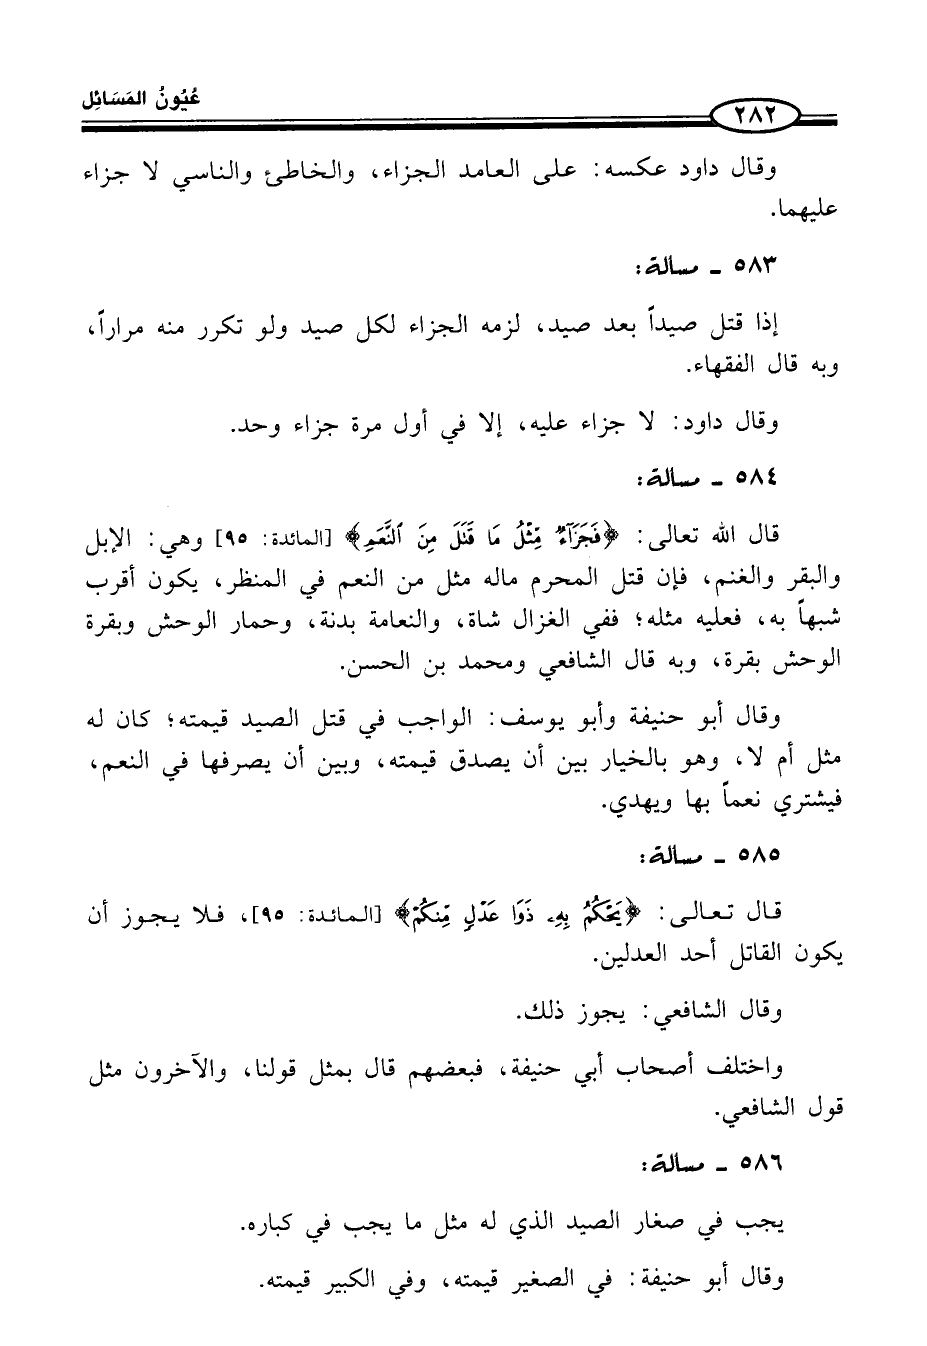 عُيُونُ المَسَائِل
٢٨٢
وقال داود عكسه: على العامد الجزاء، والخاطئ والناسي لا جزاء
عليهما.
٥٨٣ ـ مسالة:
إذا قتل صيداً بعد صيد، لزمه الجزاء لكل صيد ولو تكرر منه مراراً،
وبه قال الفقهاء.
وقال داود: لا جزاء عليه، إلا في أول مرة جزاء وحد.
٥٨٤ ـ مسالة:
قال الله تعالى: ﴿فَجَزَآءٌ مِّثْلُ مَا قَتَلَ مِنَ ٱلنَّعَمِ﴾ [المائدة: ٩٥] وهي: الإبل
والبقر والغنم، فإن قتل المحرم ماله مثل من النعم في المنظر، يكون أقرب
شبهاً به، فعليه مثله؛ ففي الغزال شاة، والنعامة بدنة، وحمار الوحش وبقرة
الوحش بقرة، وبه قال الشافعي ومحمد بن الحسن.
وقال أبو حنيفة وأبو يوسف: الواجب في قتل الصيد قيمته؛ كان له
مثل أم لا، وهو بالخيار بين أن يصدق قيمته، وبين أن يصرفها في النعم،
فيشتري نعماً بها ويهدي.
٥٨٥ ـ مسالة:
قال تعالى: ﴿يَحْكُمُ بِهِۦ ذَوَا عَدْلٍ مِّنكُمْ﴾ [المائدة: ٩٥]، فلا يجوز أن
يكون القاتل أحد العدلين.
وقال الشافعي: يجوز ذلك.
واختلف أصحاب أبي حنيفة، فبعضهم قال بمثل قولنا، والآخرون مثل
قول الشافعي.
٥٨٦ ـ مسالة:
يجب في صغار الصيد الذي له مثل ما يجب في كباره.
وقال أبو حنيفة: في الصغير قيمته، وفي الكبير قيمته.